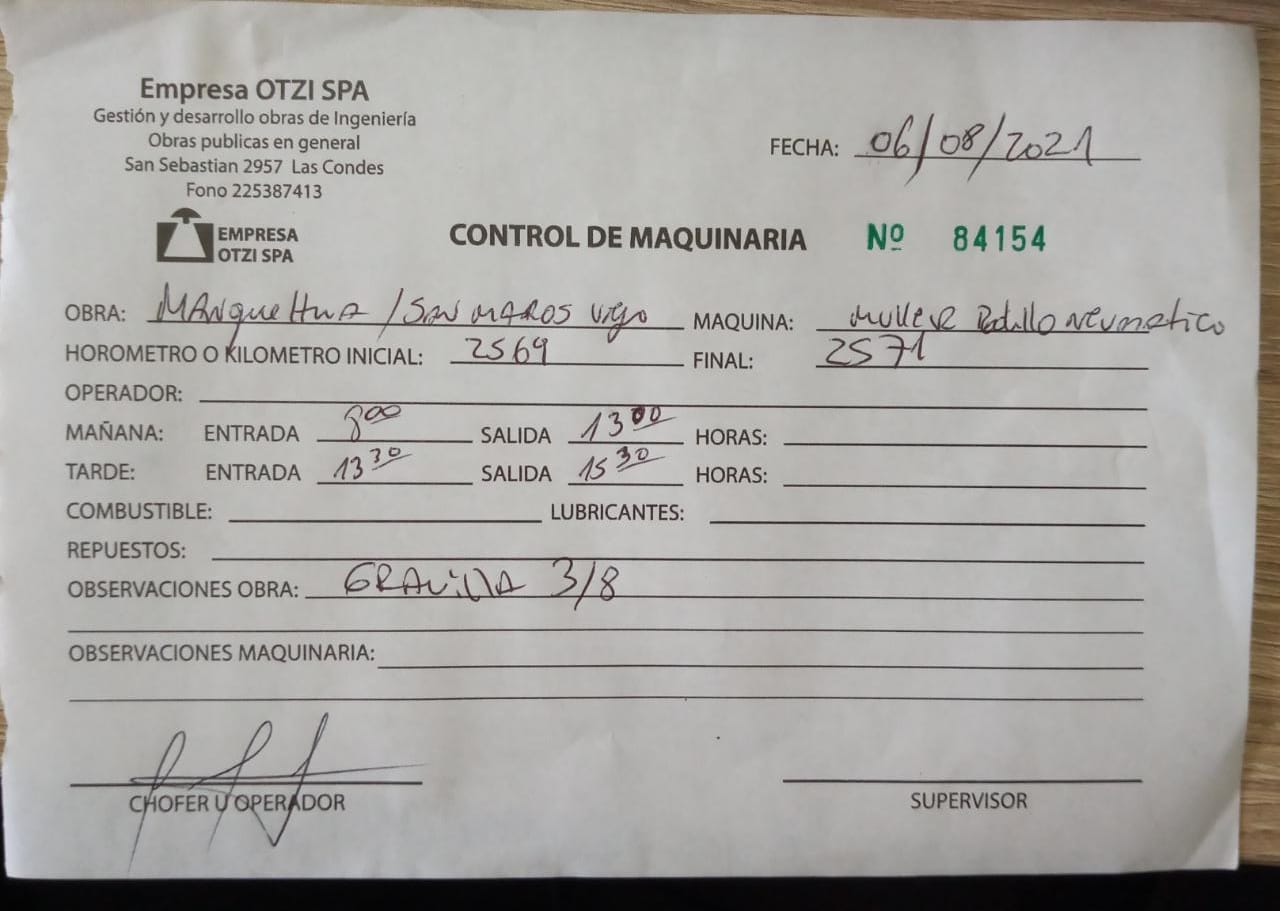 Empresa OTZI SPA
Gestión y desarrollo obras de Ingeniería
Obras publicas en general
San Sebastian 2957 Las Condes
Fono 225387413
EMPRESA
OTZI SPA
FECHA: 06/08/2021
CONTROL DE MAQUINARIA Nº 84154
OBRA: MANqueHuA / SAN MAROS Viejo MAQUINA: Rodillo Neumatico
HOROMETRO O KILOMETRO INICIAL: 2569 FINAL: 2571
OPERADOR:
MAÑANA: ENTRADA 8 00 SALIDA 13 00 HORAS:
TARDE: ENTRADA 13 30 SALIDA 15 30 HORAS:
COMBUSTIBLE: LUBRICANTES:
REPUESTOS:
OBSERVACIONES OBRA: GRAVillA 3/8
OBSERVACIONES MAQUINARIA:
CHOFER U OPERADOR SUPERVISOR